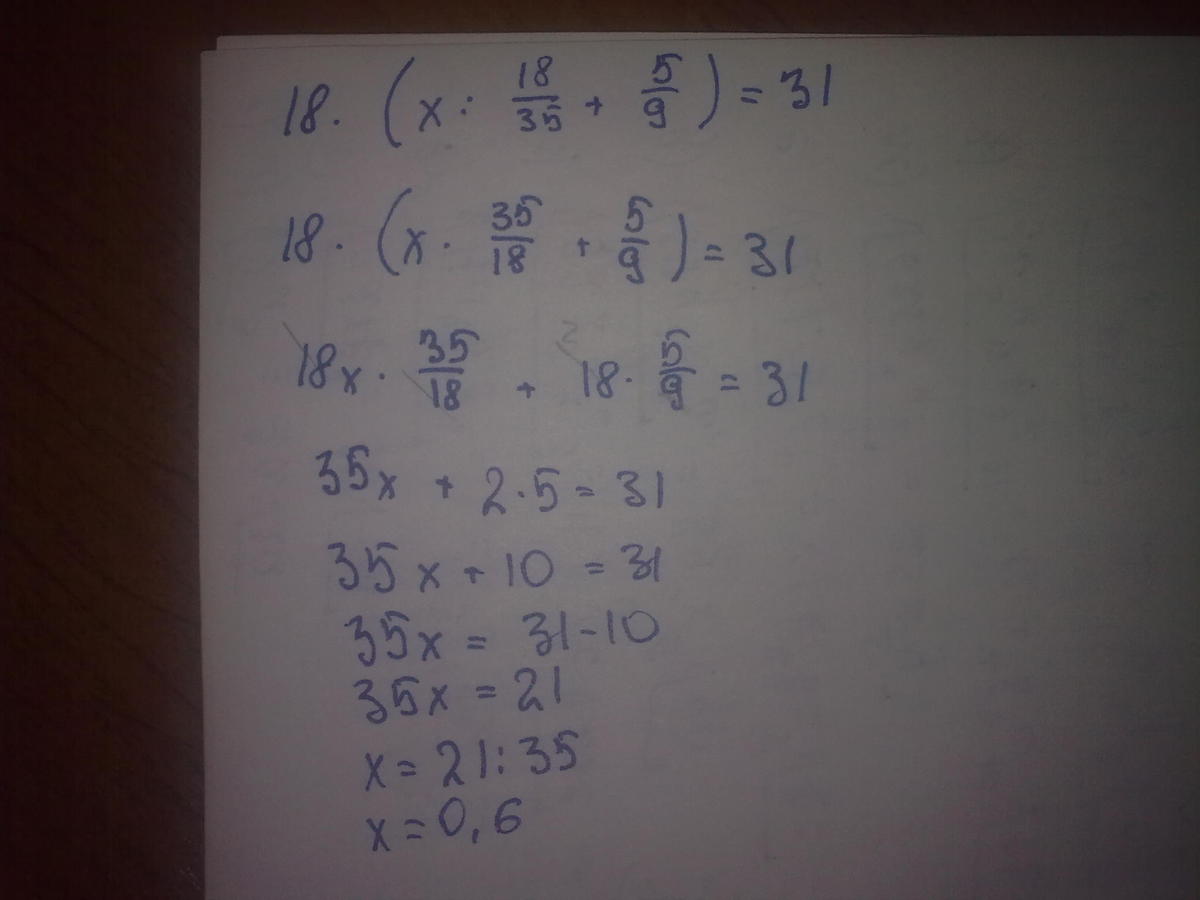 18 · (x : 18/35 + 5/9) = 31
18 · (x · 35/18 + 5/9) = 31
18x · 35/18 + 18 · 5/9 = 31
35x + 2 · 5 = 31
35x + 10 = 31
35x = 31 - 10
35x = 21
x = 21 : 35
x = 0,6